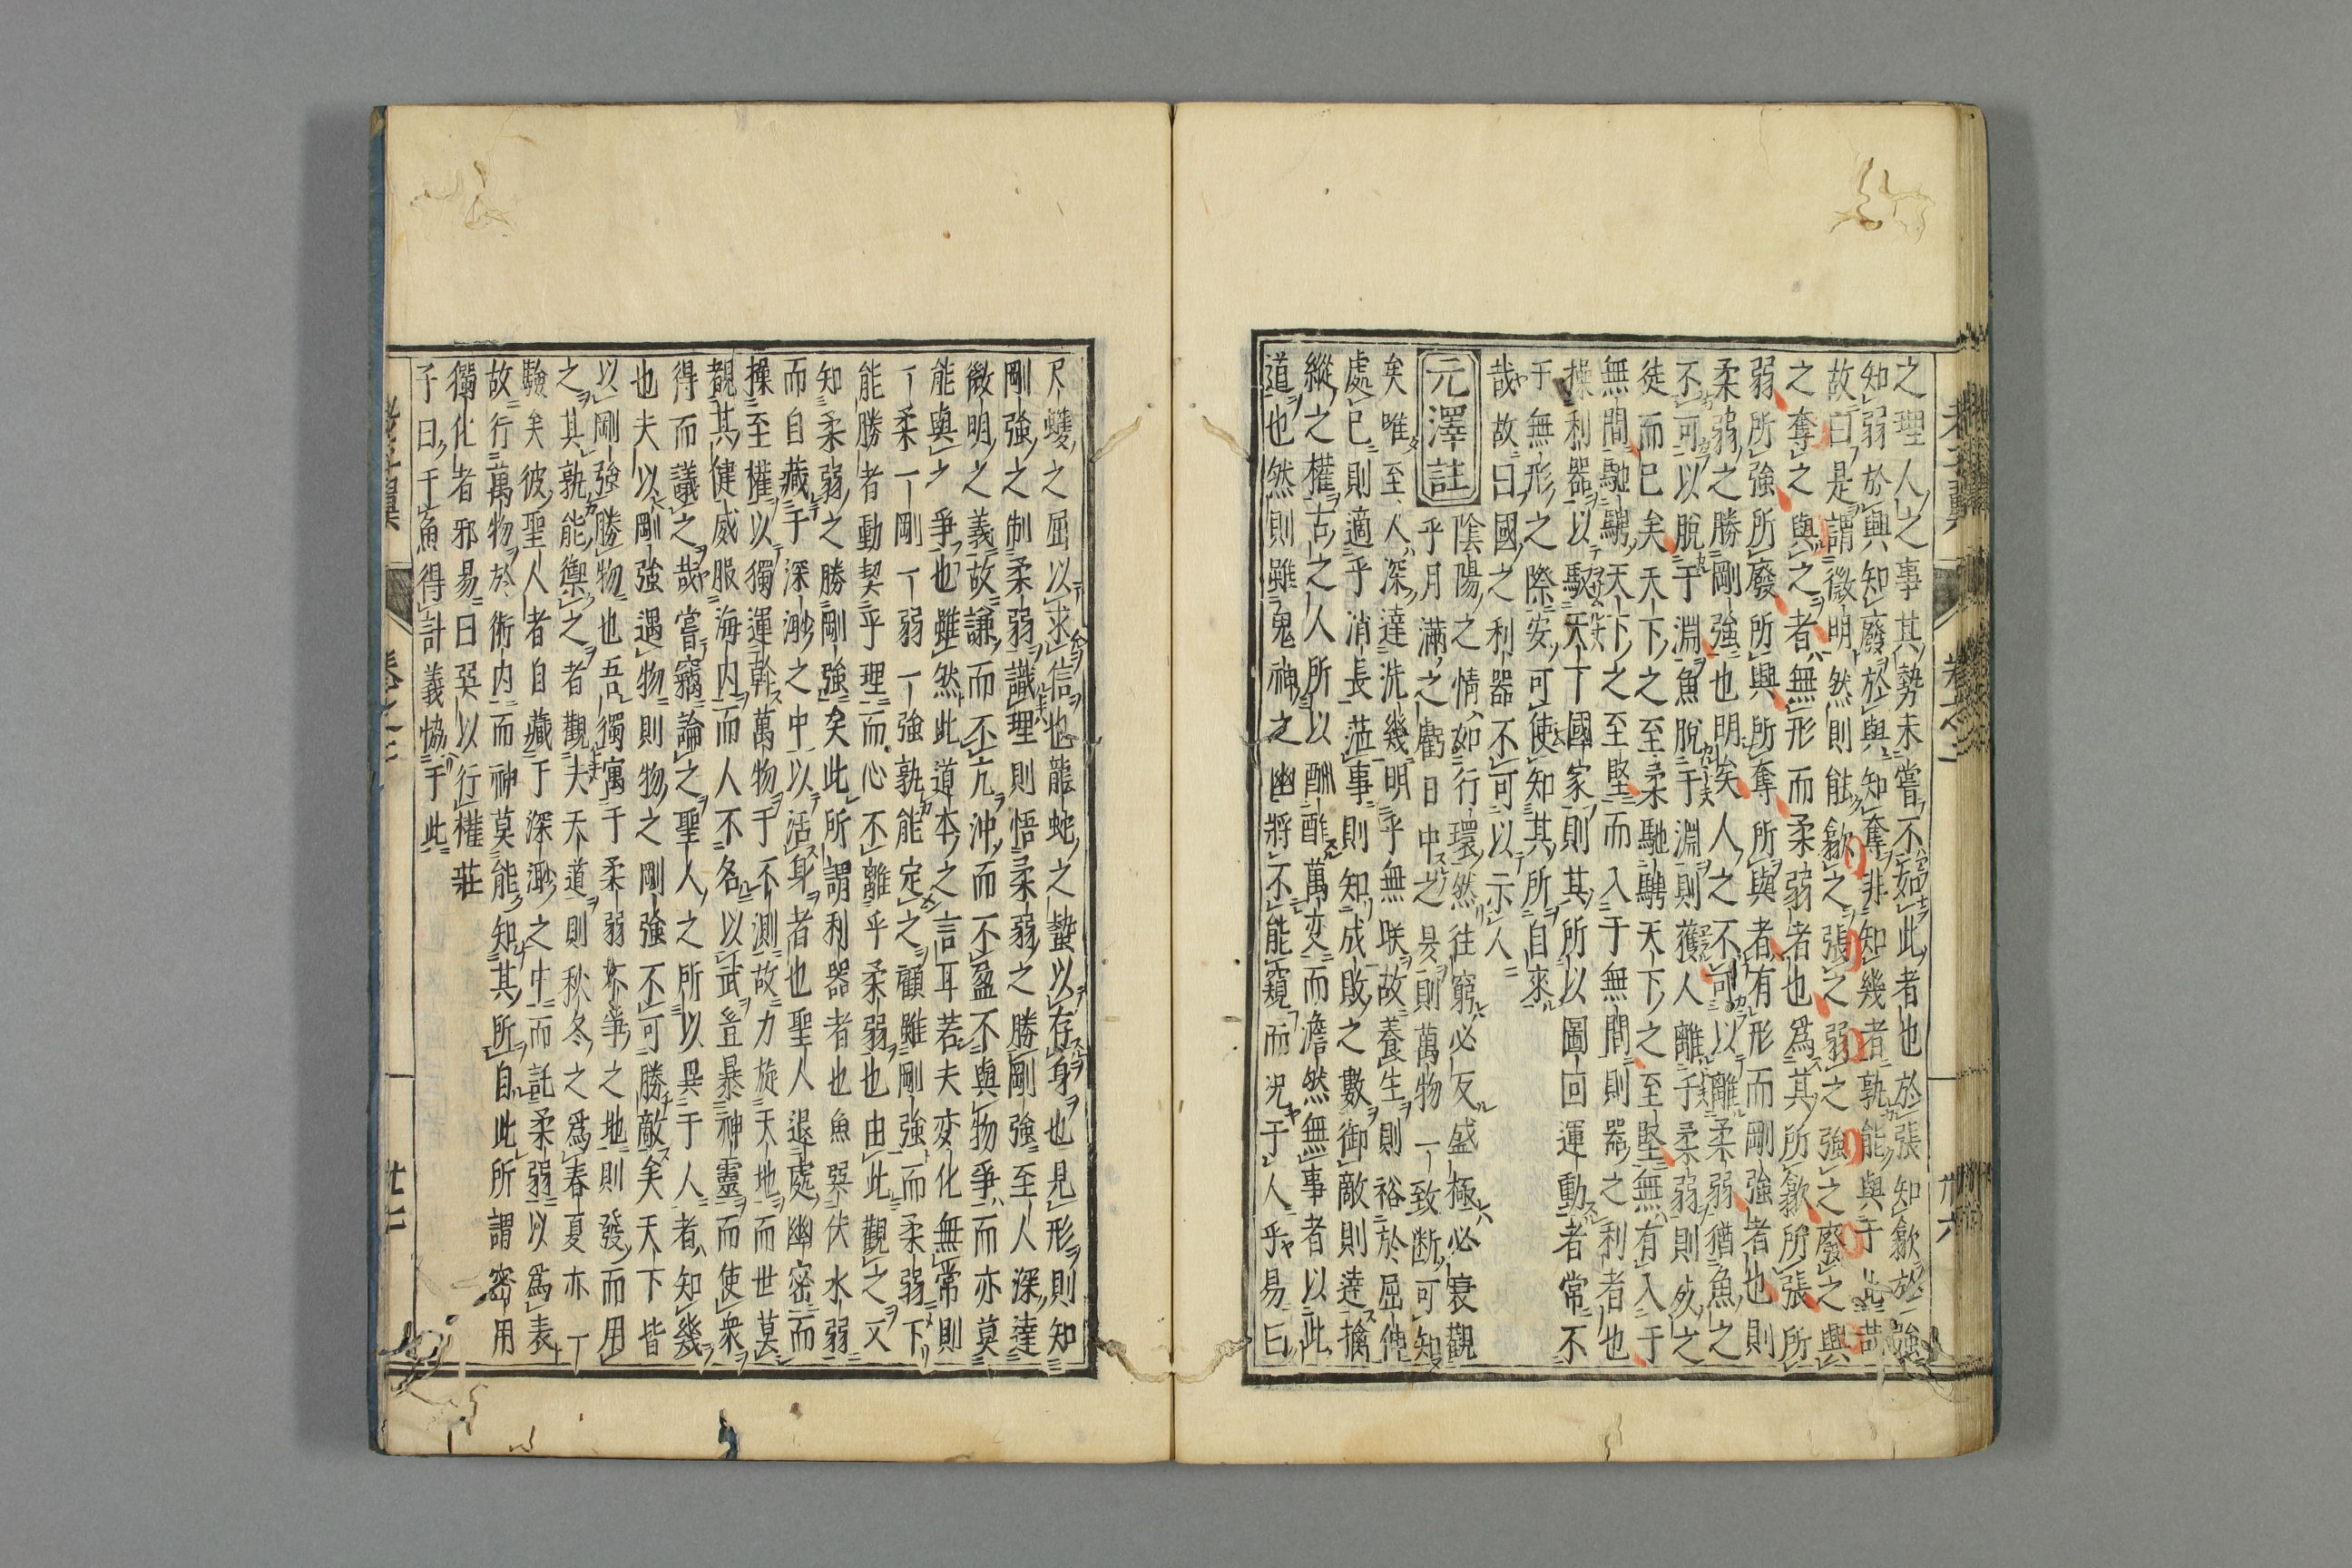 之理人之事其勢未嘗不如此者也於張知歙於強
知弱於興知廢於與知奪非知幾者孰能與于此哉
故曰是謂微明然則能歙之張之弱之強之廢之興
之奪之與之者無形而柔弱者也為其所歙所張所
弱所強所廢所興所奪所與者有形而剛強者也則
柔弱之勝剛強也明矣人之不可以離柔弱猶魚之
不可以脫于淵魚脫于淵則獲人離乎柔弱則死之
徒而已矣天下之至柔馳騁天下之至堅無有入于
無間馳騁天下之至堅而入于無間則器之利者也
操利器以馭天下國家則其所以圖回運動者常不
于無形之際安可使知其所自來
哉故曰國之利器不可以示人
元澤註
陰陽之情如行環然往窮必反盛極必衰觀
乎月滿之虧日中之昃則萬物一致斷可知
矣唯至人深達洗幾明乎無朕故養生則裕於屈伸
處已則適乎消長涖事則知成敗之數御敵則達擒
縱之權古之人所以酬酢萬変而澹然無事者以此
道也然則雖鬼神之幽將不能窺而況于人乎易曰
尺蠖之屈以求信也龍蛇之蟄以存身也見形則知
剛強之制柔弱識理則悟柔弱之勝剛強至人深達
微明之義故謙而不亢沖而不盈不與物爭而亦莫
能與之爭也雖然此道本之言耳若夫変化無常則
一柔一剛一弱一強孰能定之顧雖剛強而柔弱下
能勝者動契乎理而心不離乎柔弱也由此觀之又
知柔弱之勝剛強矣此所謂利器者也魚巽伏水弱
而自藏于深渺之中以活身者也聖人退處幽密而
操至權以獨運斡萬物于不測故力旋天地而世莫
覩其健威服海內而人不名以武豈暴神靈而使衆
得而議之哉嘗竊論之聖人之所以異于人者知幾
也夫以剛強遇物則物之剛強不可勝敵矣天下皆
以剛強勝物也吾獨寓于柔弱不爭之地則發而用
之其孰能禦之者觀夫天道則秋冬之為春夏亦一
驗矣彼聖人者自藏于深渺之中而託柔弱以為表
故行萬物於術內而神莫能知其所自此所謂密用
獨化者邪易曰巽以行權莊
子曰于魚得計義協于此